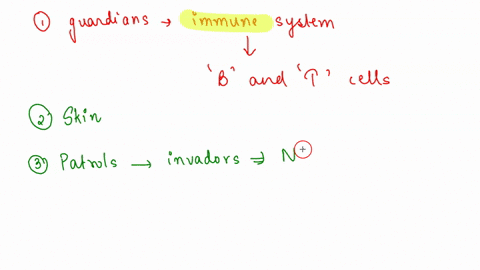 ① guardians → immune system
↓
'B' and 'T' cells
② Skin
③ Patrols → invadors ⇒ N